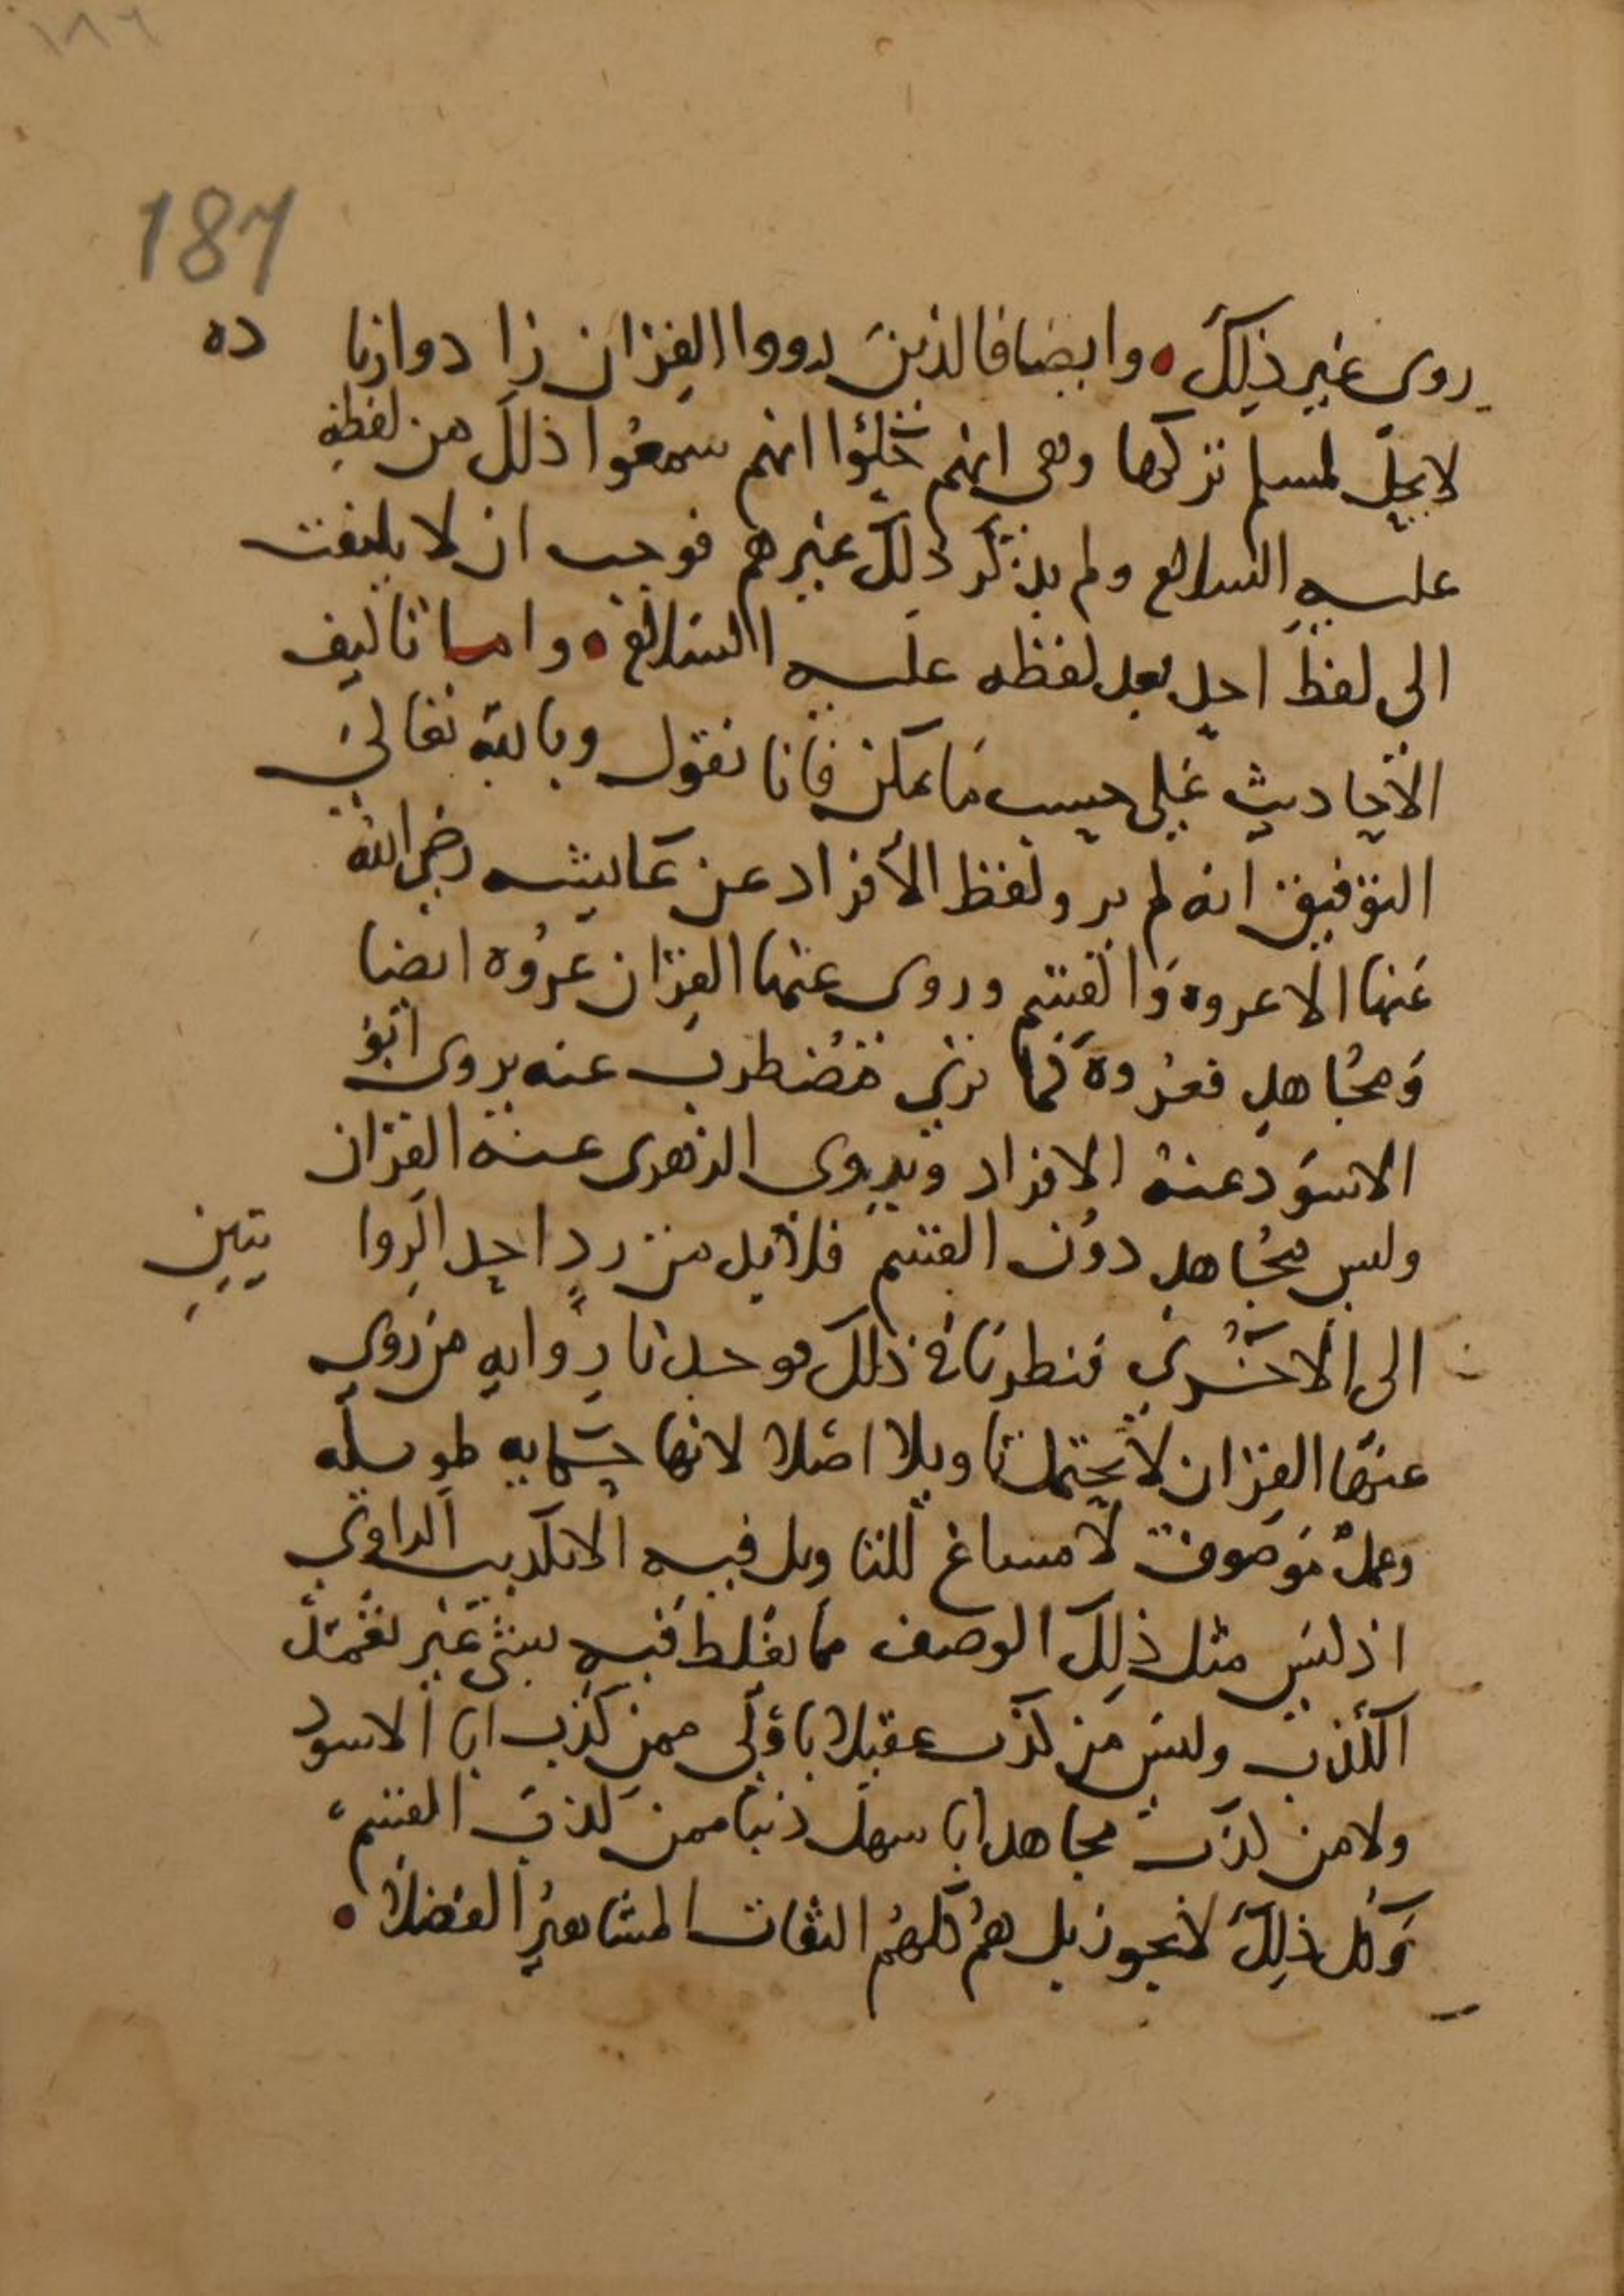 ١٨٦
187
روى غير ذلك . وايضا فالذين رووا القران زا دوا زيا ده
لا يحل لمسلم تركها وهى انهم حكوا انهم سمعوا ذلك من لفظه
عليه السلام ولم يذكر ذلك غيرهم فوجب ان لا يلتفت
الى لفظ احد بعد لفظه عليه السلام . واما تاليف
الاحاديث على حسب ما يمكن فانا نقول وبالله تعالى
التوفيق انه لم يرو لفظ الافراد عن عايشه رضى الله
عنها الا عروه والقسم وروى عنها القران عروه ايضا
ومجاهد فعروة كما ترى مضطرب عنه يروى ابو
الاسود عنه الافراد ويروى الزهرى عنه القران
وليس مجاهد دون القسم فلا بد من رد احد الروا يتين
الى الاخرى فنظرنا فى ذلك فوجدنا روايه من روى
عنها القران لا تحتمل تاويلا اصلا لانها حكايه طويله
وعمل موصوف لا مساغ للتاويل فيه الا تكذيب الراوى
اذ ليس مثل ذلك الوصف مما يغلط فيه بشى غير تعمد
الكذب وليس من كذب عقيلا باولى ممن كذب ابا الاسود
ولا من كذب مجاهدا با سهل ذنبا ممن كذب القسم
وكل ذلك لا يجوز بل هم كلهم الثقات المشاهير الفضلا .